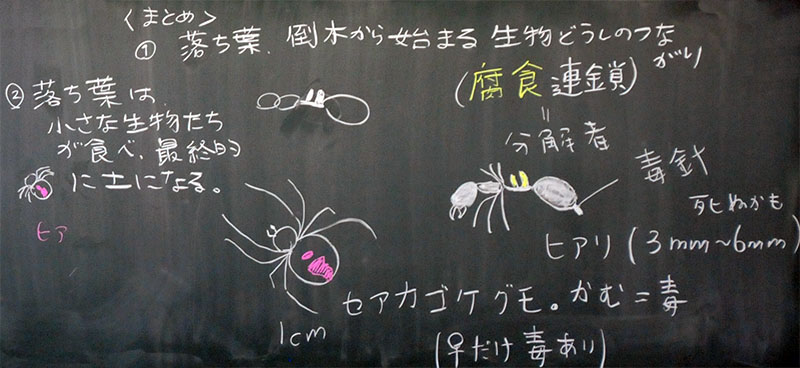 〈まとめ〉
① 落ち葉、倒木から始まる生物どうしのつながり
(腐食連鎖)
=
分解者
② 落ち葉は、
小さな生物たち
が食べ、最終的
に土になる。
ヒア
毒針
死ぬかも
ヒアリ (3mm~6mm)
セアカゴケグモ。かむ=毒
(♀だけ毒あり)
1cm